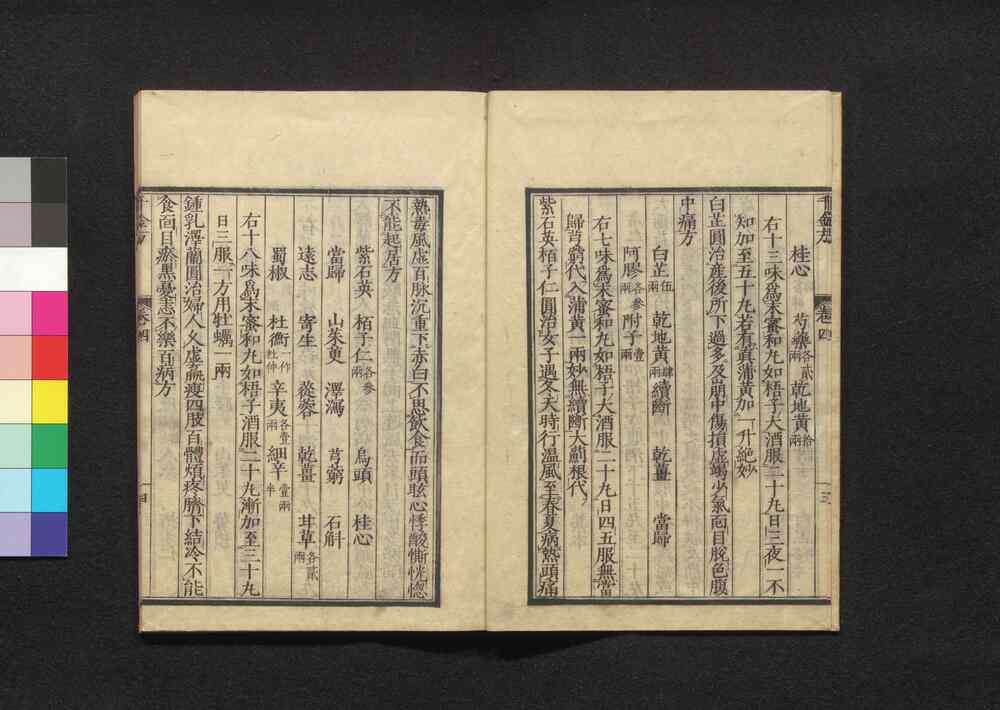 千金方 卷四 三
桂心 芍藥各貳兩 乾地黃拾兩
右十三味爲末蜜和丸如梧子大酒服二十丸日三夜一不
知加至五十丸若有眞蒲黃加一升絕妙
白芷圓治產後所下過多及崩中傷損虛竭少氣面目脫色腹
中痛方
白芷伍兩 乾地黃肆兩 續斷 乾薑 當歸
阿膠各參兩 附子壹兩
右七味爲末蜜和丸如梧子大酒服二十丸日四五服無當
歸芎藭代入蒲黃一兩妙無續斷大薊根代
紫石英栢子仁圓治女子遇冬天時行溫風至春夏病熱頭痛
熱毒風虛百脉沉重下赤白不思飲食而頭眩心悸酸慚恍惚
不能起居方
紫石英 栢子仁各參兩 烏頭 桂心
當歸 山茱萸 澤瀉 芎藭 石斛
遠志 寄生 蓯蓉 乾薑 甘草各貳兩
蜀椒 杜衡一作杜仲 辛夷各壹兩 細辛壹兩半
右十八味爲末蜜和丸如梧子酒服二十丸漸加至三十丸
日三服一方用牡蠣一兩
鍾乳澤蘭圓治婦人久虛羸瘦四肢百體煩疼臍下結冷不能
食面目瘀黑憂恚不樂百病方
千金方 卷四